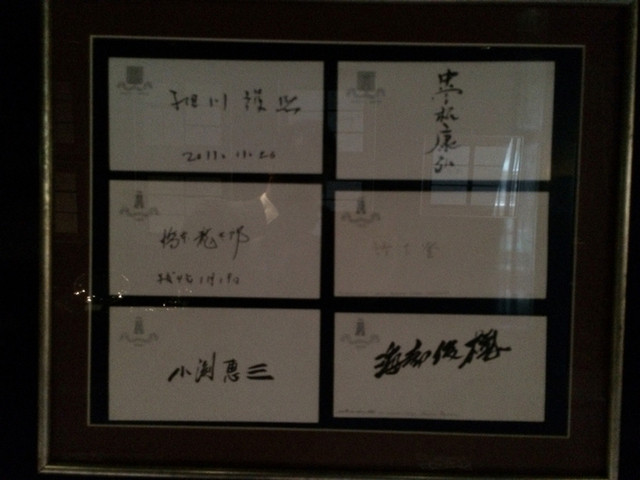 細川護熙
2011.11.20
中曽根康弘
橋本龍太郎
竹下登
小渕恵三
海部俊樹